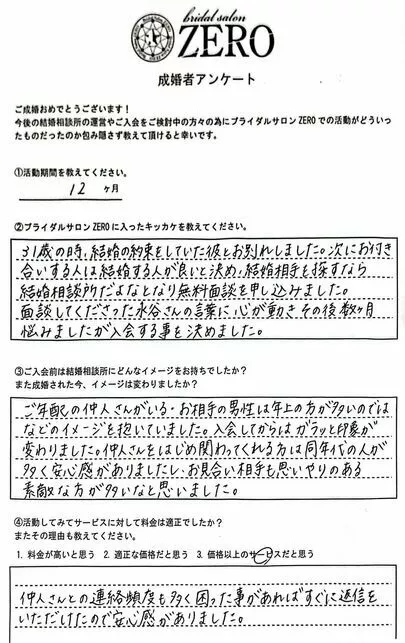 bridal salon
ZERO
成婚者アンケート
ご成婚おめでとうございます！
今後の結婚相談所の運営やご入会をご検討中の方々の為にブライダルサロンZEROでの活動がどういっ
たものだったのか包み隠さず教えて頂けると幸いです。
①活動期間を教えてください。
12 ヶ月
②ブライダルサロンZEROに入ったキッカケを教えてください。
31歳の時、結婚の約束をしていた彼とお別れしました。次にお付き
合いする人は結婚する人が良いと決め、結婚相手を探すなら
結婚相談所だよなとなり無料面談を申し込みました。
面談してくださった水谷さんの言葉に心が動き その後数ヶ月
悩みましたが入会する事を決めました。
③ご入会前は結婚相談所にどんなイメージをお持ちでしたか？
また成婚された今、イメージは変わりましたか？
ご年配の仲人さんがいる・お相手の男性は年上の方が多いのでは
などのイメージを抱いていました。入会してからは ガラッと印象が
変わりました。仲人さんをはじめ関わってくれる方は同年代の人が
多く安心感がありましたし、お見合い相手も思いやりのある
素敵な方が多いなと思いました。
④活動してみてサービスに対して料金は適正でしたか？
またその理由も教えてください。
1. 料金が高いと思う 2. 適正な価格だと思う 3. 価格以上のサービスだと思う
仲人さんとの連絡頻度も多く困った事があればすぐに返信を
いただけたので安心感がありました。